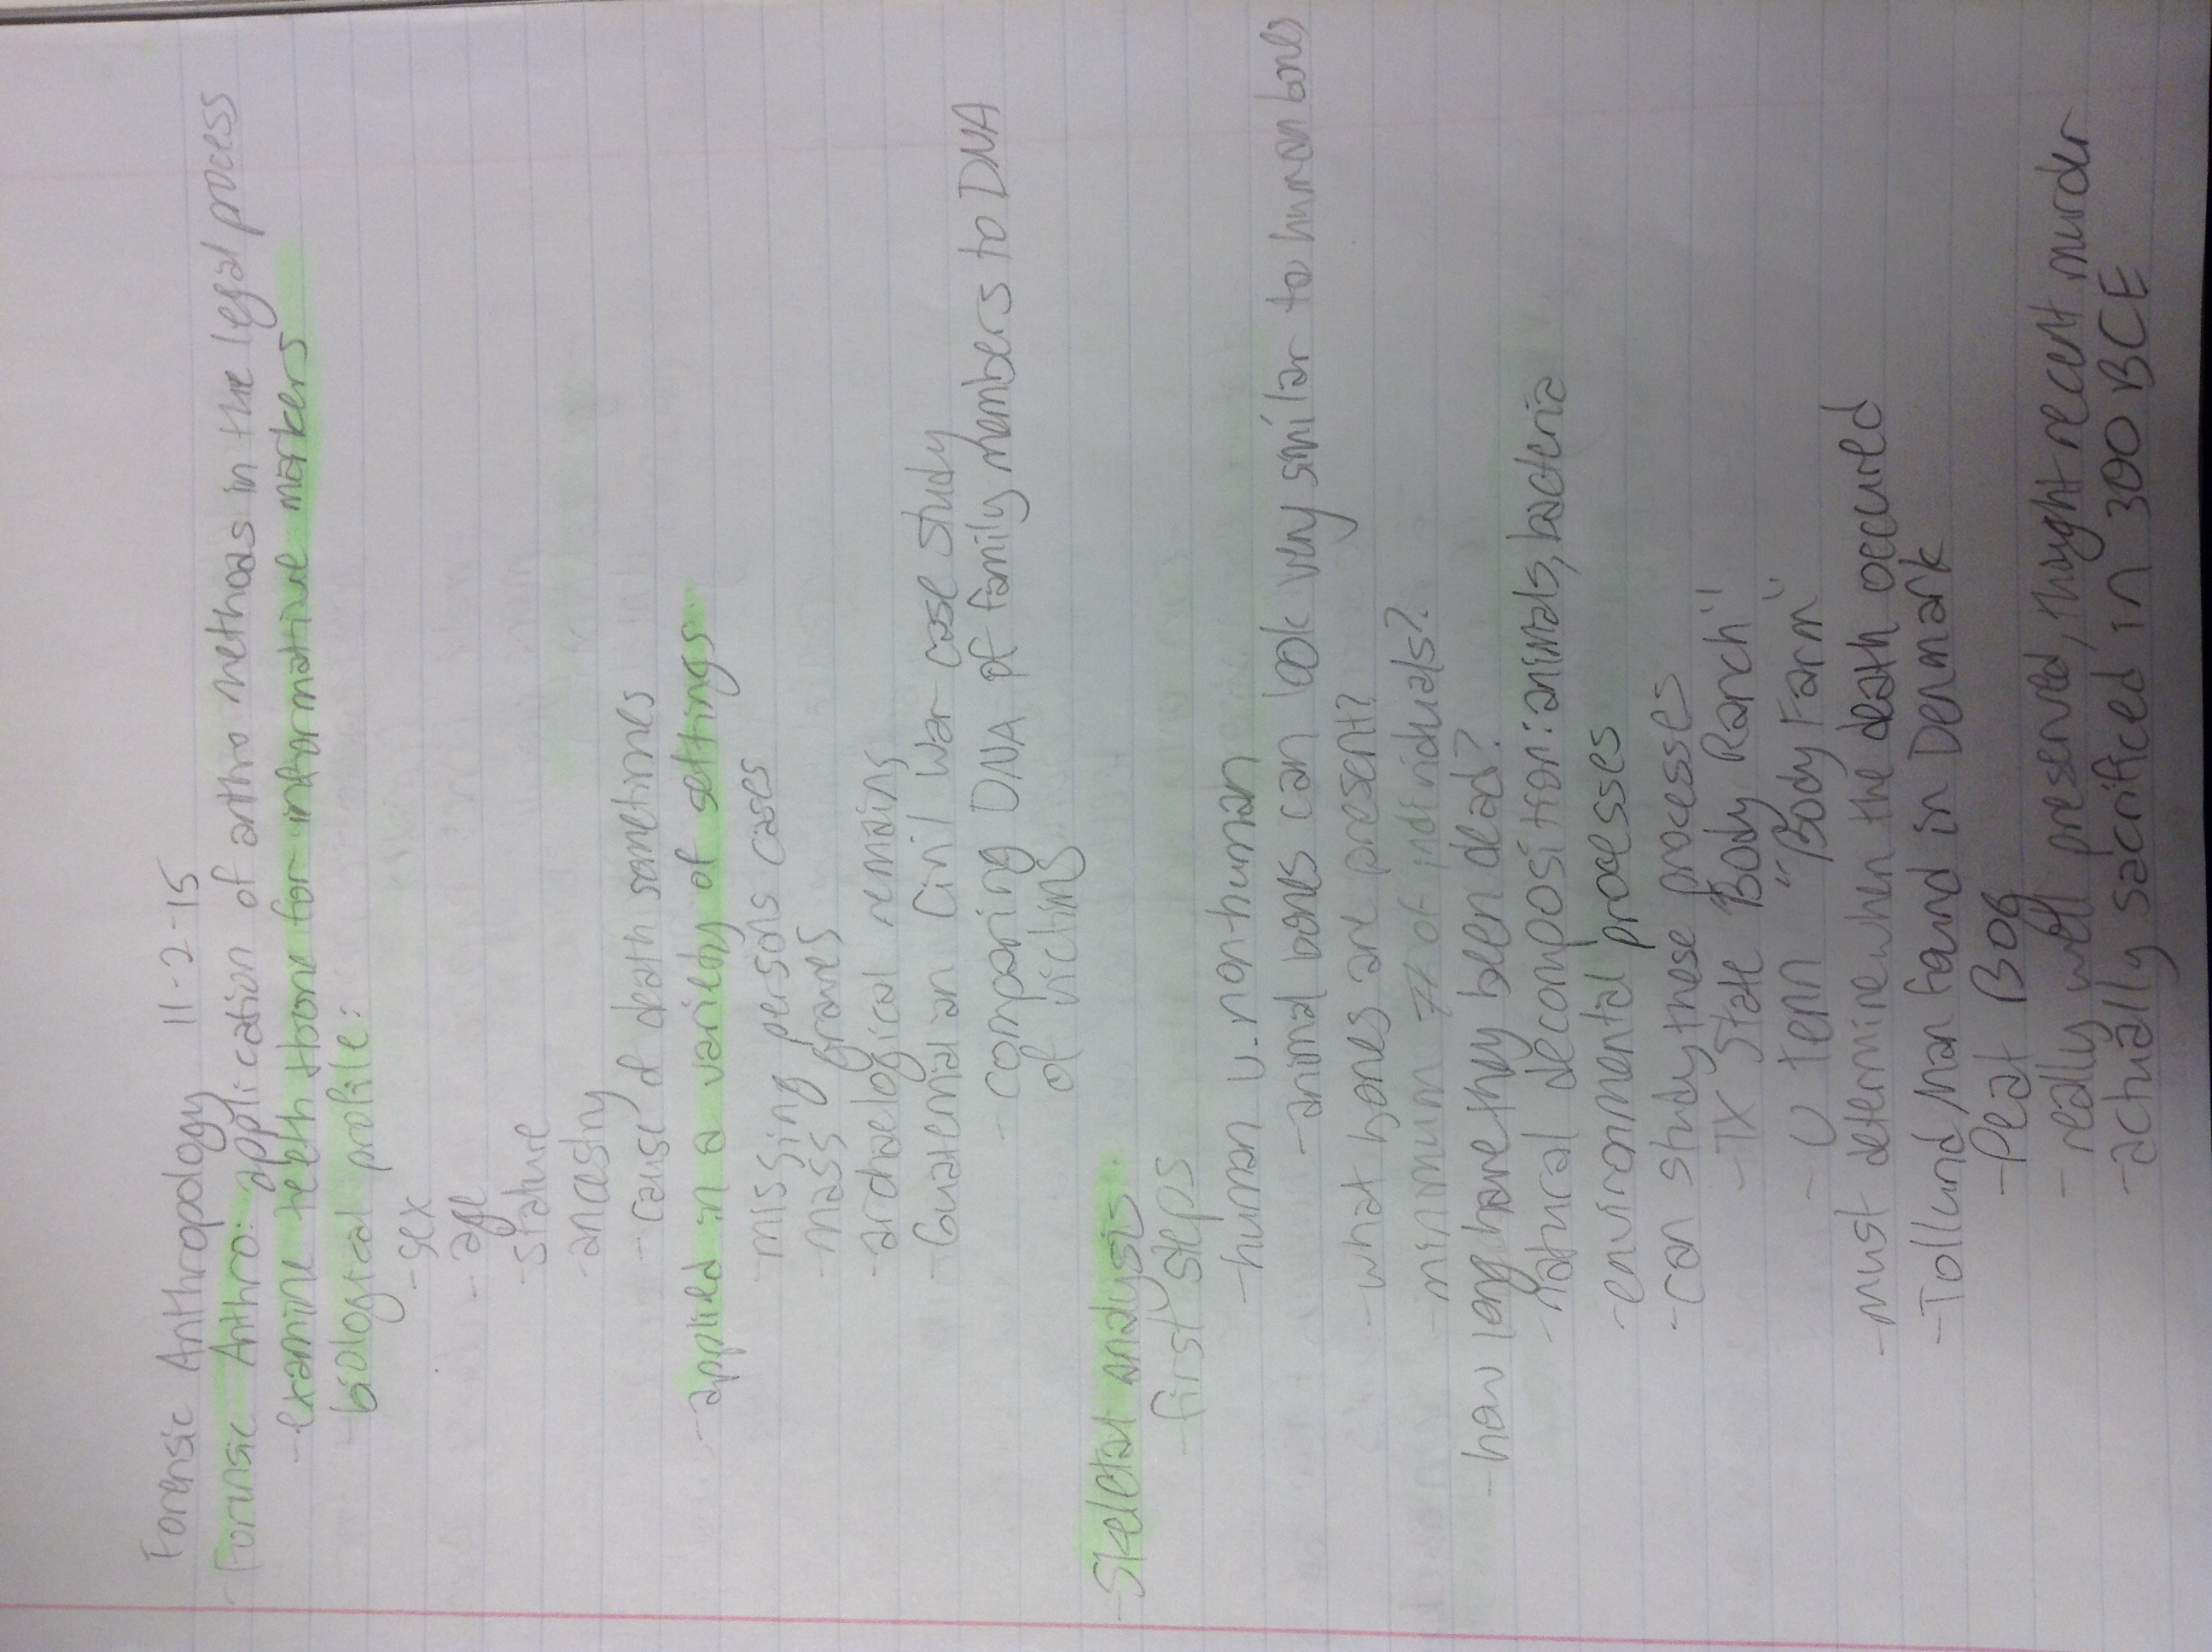 Forensic Anthropology 11-2-15
- Forensic Anthro: application of anthro methods in the legal process
- examine teeth + bone for informative markers
- biological profile:
- sex
- age
- stature
- ancestry
- cause of death sometimes
- applied in a variety of settings
- missing persons cases
- mass graves
- archaelogical remains
- Guatemalan Civil War case study
- comparing DNA of family members to DNA
of victims
- Skeletal analysis
- first steps
- human v. non-human
- animal bones can look very similar to human bones
- what bones are present?
- minimum # of individuals?
- how long have they been dead?
- natural decomposition: animals, bacteria
- environmental processes
- can study these processes
- TX State "Body Ranch"
- U Tenn "Body Farm"
- must determine when the death occured
- Tollund Man found in Denmark
- Peat Bog
- really well preserved, thought recent murder
- actually sacrificed in 300 BCE